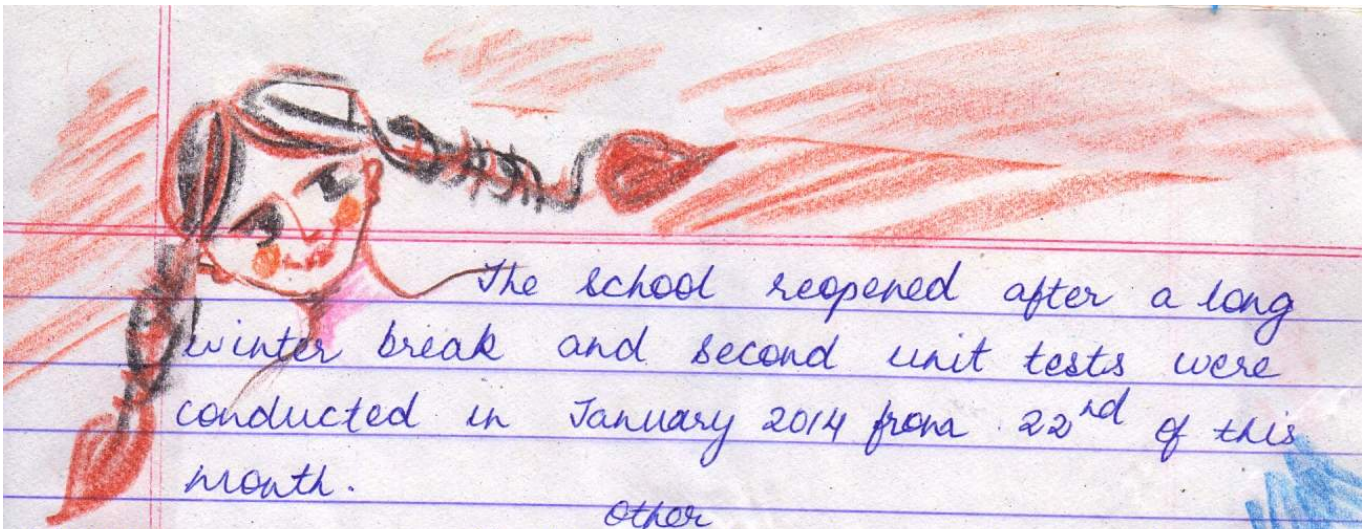 The school reopened after a long
winter break and second unit tests were
conducted in January 2014 from 22nd of this
month.
Other